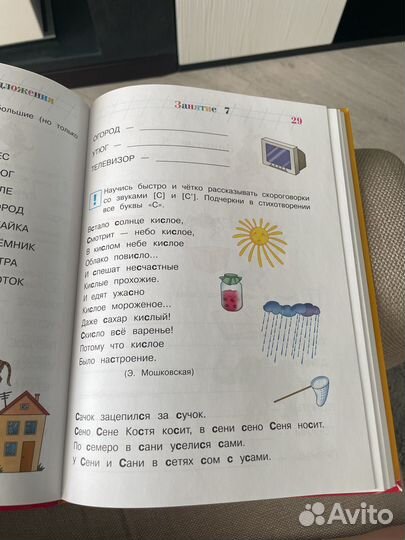 дложения
большие (но только
ЕС
ЮГ
ЛЕ
РОД
АЙКА
ЕМНИК
ТРА
ОТОК
Занятие 7
29
ОГОРОД —
УТЮГ —
ТЕЛЕВИЗОР —
! Научись быстро и чётко рассказывать скороговорки
со звуками [С] и [С']. Подчеркни в стихотворении
все буквы «С».
Встало солнце кислое,
Смотрит — небо кислое,
В кислом небе кислое
Облако повисло...
И спешат несчастные
Кислые прохожие.
И едят ужасно
Кислое мороженое...
Даже сахар кислый!
Скисло всё варенье!
Потому что кислое
Было настроение.
(Э. Мошковская)
Сачок зацепился за сучок.
Сено Сене Костя косит, в сени сено Сеня носит.
По семеро в сани уселися сами.
У Сени и Сани в сетях сом с усами.
Avito